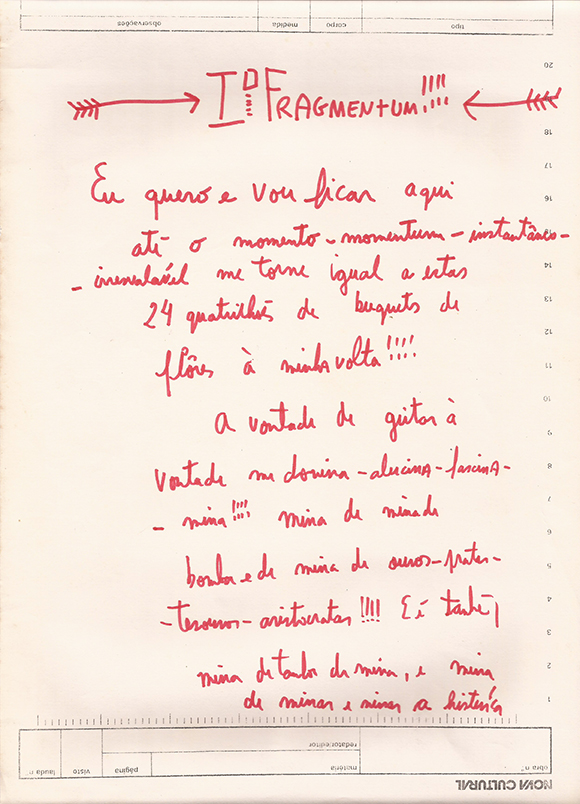 observações medida corpo tipo
20
ID FRAGMENTUM!!!!
18
17
Eu quero e vou ficar aqui
16
até o momento-momentum-instantâneo-
-inenarrável me torne igual a estas
14
24 quatrilhões de buquets de
13
12
flôres à minha volta!!!!
11
10
A vontade de gritar à
9
vontade me domina-alucina-fascina-
8
7
-mina!!!! mina de mina de
6
bomba e de mina de ouros-pratas-
5
-tesouros-aristocratas!!!! E é também
4
3
mina de tambor de mina, e mina
2
de minar e minar a história
1
lauda nº visto página redator/editor matéria obra nº
NOVA CULTURAL